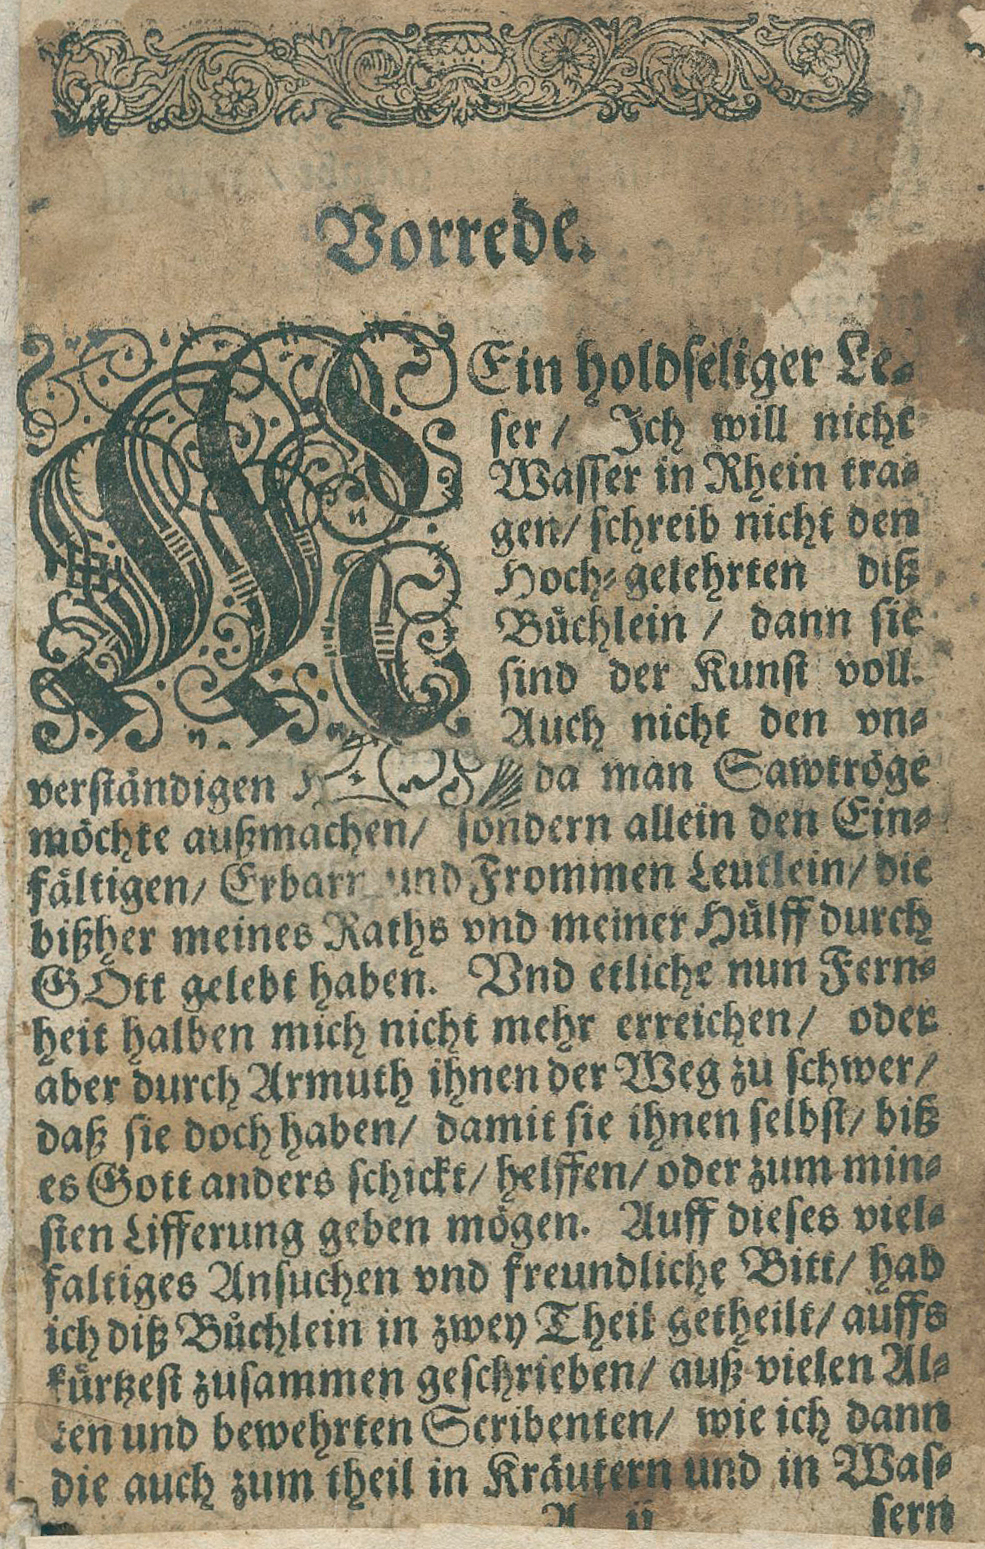 Vorrede.
MEin holdseliger Le-
ser/ Ich will nicht
Wasser in Rhein tra-
gen/ schreib nicht den
Hoch-gelehrten diß
Büchlein / dann sie
sind der Kunst voll.
Auch nicht den vn-
verständigen da man Sawtröge
möchte außmachen/ sondern allein den Ein-
fältigen/ Erbarn und Frommen Leutlein/ die
bißher meines Raths vnd meiner Hülff durch
GOtt gelebt haben. Vnd etliche nun Fern-
heit halben mich nicht mehr erreichen/ oder
aber durch Armuth ihnen der Weg zu schwer/
daß sie doch haben/ damit sie ihnen selbst/ biß
es Gott anders schickt/ helffen/ oder zum min-
sten Lifferung geben mögen. Auff dieses viel-
faltiges Ansuchen vnd freundliche Bitt/ hab
ich diß Büchlein in zwey Theil getheilt/ auffs
kürtzest zusammen geschrieben/ auß vielen Al-
ten und bewehrten Scribenten/ wie ich dann
die auch zum theil in Kräutern und in Was-
A ij sern